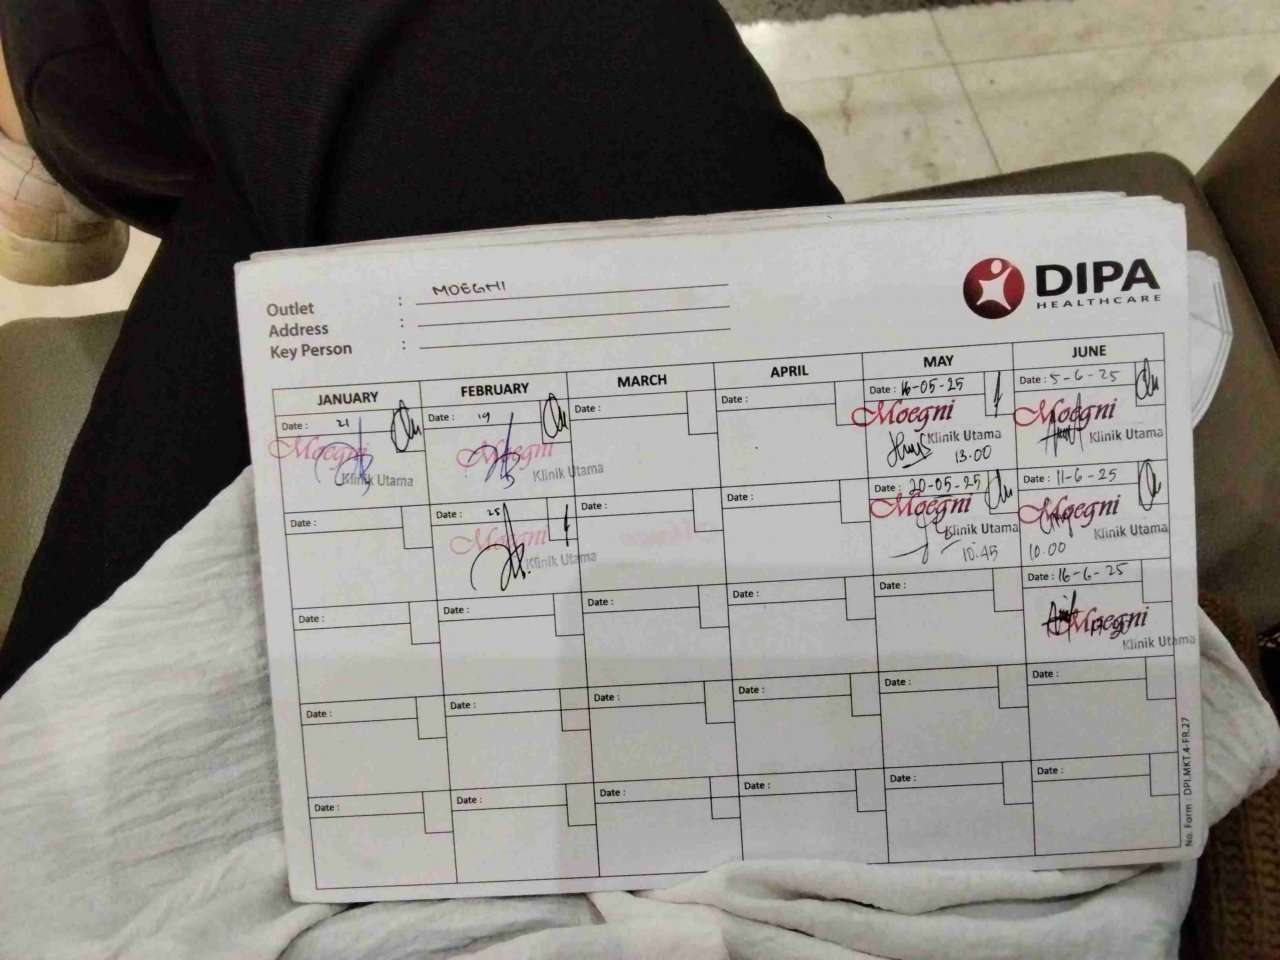 DIPA
HEALTHCARE
Outlet : MOEGNI
Address :
Key Person :
JANUARY FEBRUARY MARCH APRIL MAY JUNE
Date : 21 Date : 19 Date : Date : Date : 16-05-25 Date : 5-6-25
Moegni Moegni Moegni Moegni
Klinik Utama Klinik Utama Klinik Utama Klinik Utama
13.00
Date : Date : 25 Date : Date : Date : 20-05-25 Date : 11-6-25
Moegni Moegni Moegni
Klinik Utama Klinik Utama Klinik Utama
10.45 10.00
Date : Date : Date : Date : Date : Date : 16-6-25
Moegni
Klinik Utama
Date : Date : Date : Date : Date : Date :
Date : Date : Date : Date : Date : Date :
No. Form : DPI.MKT.4-FR.27